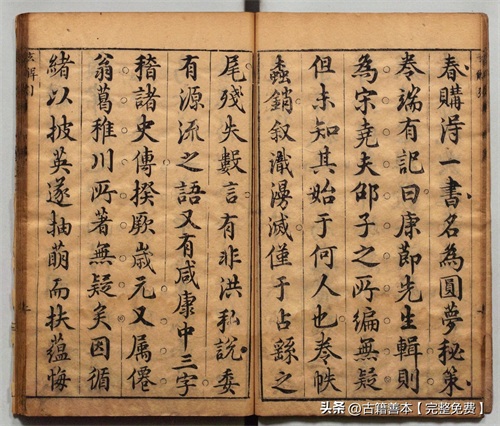 春購淂一書名為圓夢秘策
卷端有記曰康節先生輯則
為宋堯夫邵子之所編無疑
但未知其始于何人也卷帙
蠧銷叙讖漫滅僅于占繇之
尾殘失數言有非洪私說委
有源流之語又有咸康中三字
稽諸史傳揆厥歲元又属僊
翁葛稚川所著無疑矣因循
緒以披英遂抽萌而扶蘊悔
头条 @古籍善本【完整免费】